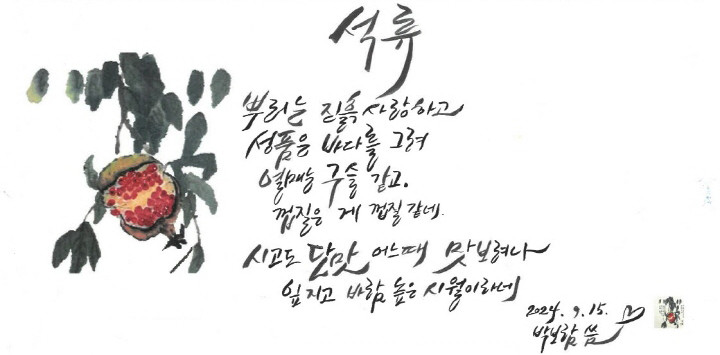 석류
뿌리는 진흙 사랑하고
성품은 바다를 그려
열매는 구슬 같고.
껍질은 게 껍질 같네.
시고도 단맛 어느때 맛보려나
잎 지고 바람 높은 시월이라네
2024. 9. 15.
박보람 씀